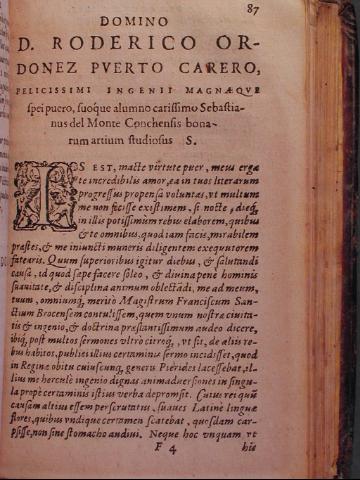 87
DOMINO
D. RODERICO OR-
DONEZ PVERTO CARERO,
FELICISSIMI INGENII MAGNÆQVE
spei puero, suoque alumno carissimo Sebastia-
nus del Monte Conchensis bona-
rum artium studiosus S.
IS EST, macte virtute puer, meus erga
te incredibilis amor, ea in tuos literarum
progressus propensa voluntas, vt multum
me non fecisse existimem, si nocte, dieq́;
in illis potissimum rebus elaborem, quibus
& te omnibus, quod iam facis, mirabilem
præstes, & me iniuncti muneris diligentem exequutorem
fatearis. Quum superioribus igitur diebus, & salutandi
causa, id quod sæpe facere soleo, & diuina pene hominis
suauitate, & disciplina animum oblectãdi, me ad meum,
tuum, omniumq́; meritò Magistrum Franciscum San-
ctium Brocensem contulissem, quem vnum nostræ ciuita-
tis & ingenio, & doctrina præstantissimum audeo dicere,
ibiq́; post multos sermones vltro citroq́;, vt sit, de alijs re-
bus habitos, publici illius certaminis sermo incidisset, quod
in Reginæ obitu cuiuscunq; generis Pierides lacessebat, il-
lius me herculè ingenio dignas animaduersiones in singu-
la propè certaminis istius verba depromsit. Cuius rei quũ
causam altius essem perscrutatus, suaues Latinè linguæ
flores, quibus vndique certamen scatebat, quosdam car-
psisse, non sine stomacho audiui. Neque hoc vnquam vt
F 4
his